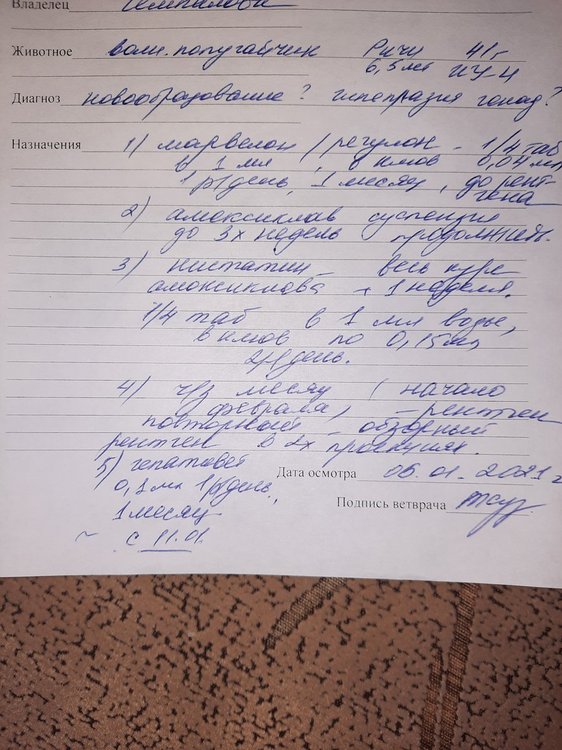 Владелец
Животное волн. попугайчик Ричи 41 г
6,5 лет ИУ-4
Диагноз новообразование? гиперплазия гонад?
Назначения 1) марвелон / регулон - 1/4 таб
в 1 мл, в клюв 0,04 мл
1 р/день, 1 месяц, до рент-
гена
2) амоксиклав суспензия
до 3х недель продолжить.
3) нистатин весь курс
амоксиклава + 1 неделя.
1/4 таб в 1 мл воды,
в клюв по 0,15 мл
2р/день.
4) ч/з месяц (начало
февраля) - рентген
повторный - обзорный
рентген в 2х проекциях.
5) гепатовет
0,1 мл 1р/день,
1 месяц
~ с 11.01.
Дата осмотра 06.01.2021 г
Подпись ветврача